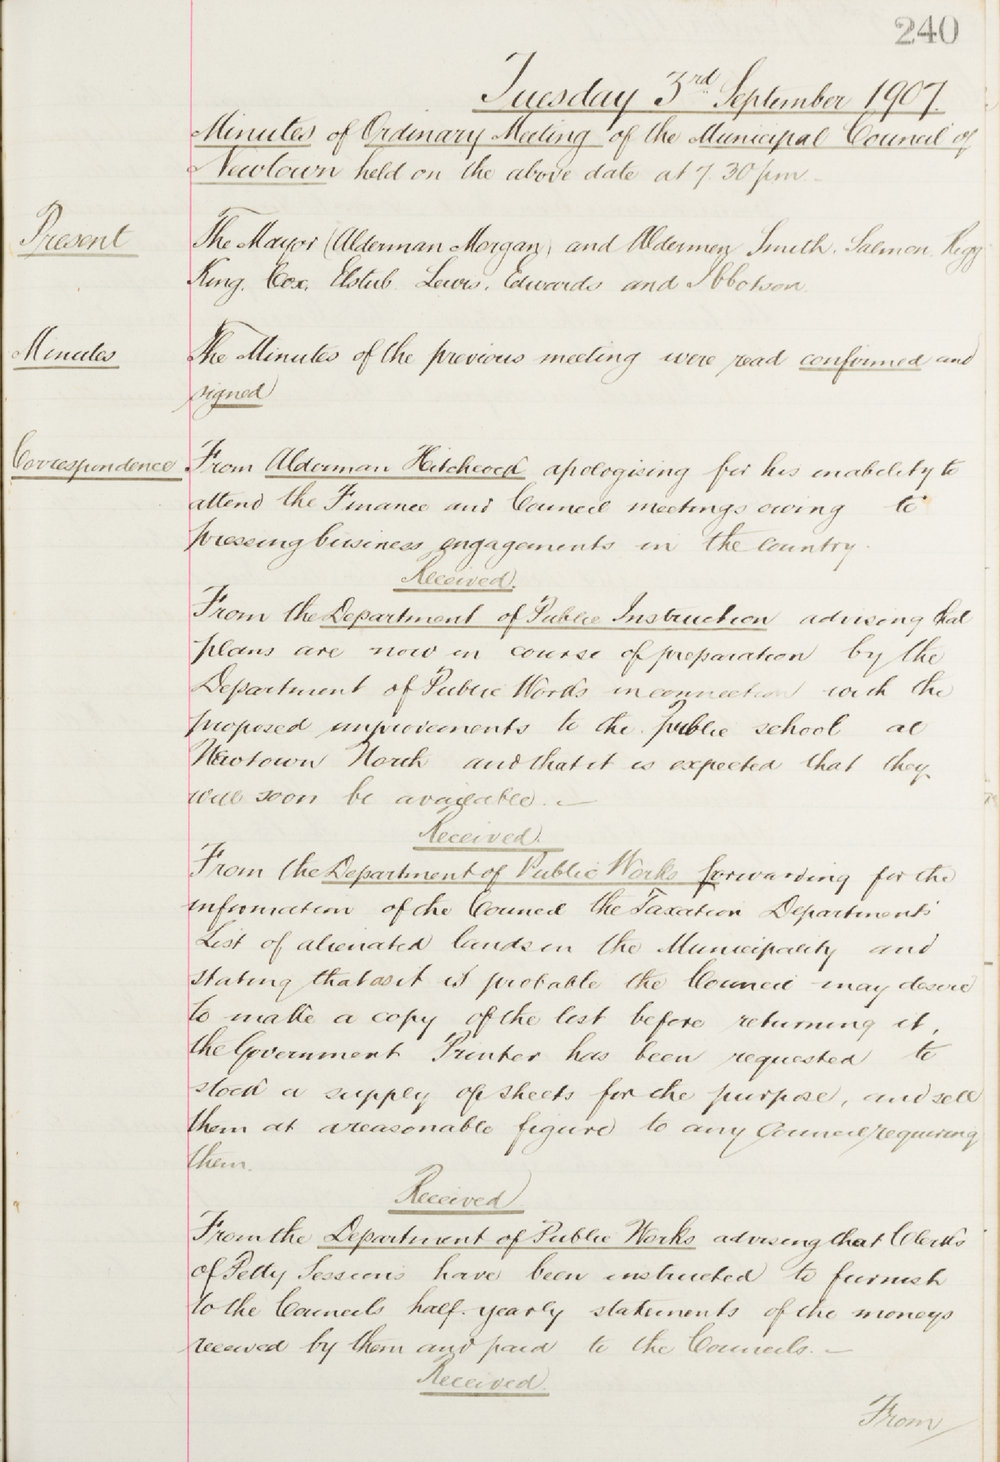 240
Tuesday 3rd September 1907.
Minutes of Ordinary Meeting of the Municipal Council of
Newtown held on the above date at 7.30 pm
Present
The Mayor (Alderman Morgan) and Aldermen Smith. Salmon. Rigg
King. Cox. Elstub. Lewis. Edwards and Ibbotson.
Minutes
The Minutes of the previous meeting were read confirmed and
signed
Correspondence
From Alderman Hitchcock apologising for his inability to
attend the Finance and Council meetings owing to
pressing business engagements in the country.
Received.
From the Department of Public Instruction advising that
plans are now in course of preparation by the
Department of Public Works in connection with the
proposed improvements to the public school at
Newtown North and that it is expected that they
will soon be available. —
Received.
From the Department of Public Works forwarding for the
information of the Council the Taxation Departments'
List of alienated lands in the Municipality and
stating that as it is probable the Council may desire
to make a copy of the list before returning it,
the Government Printer has been requested to
stock a supply of sheets for the purpose, and sell
them at a reasonable figure to any Council requiring
them.
Received
From the Department of Public Works advising that Clerks
of Petty Sessions have been instructed to furnish
to the Councils half-yearly statements of the moneys
received by them and paid to the Councils. —
Received.
From